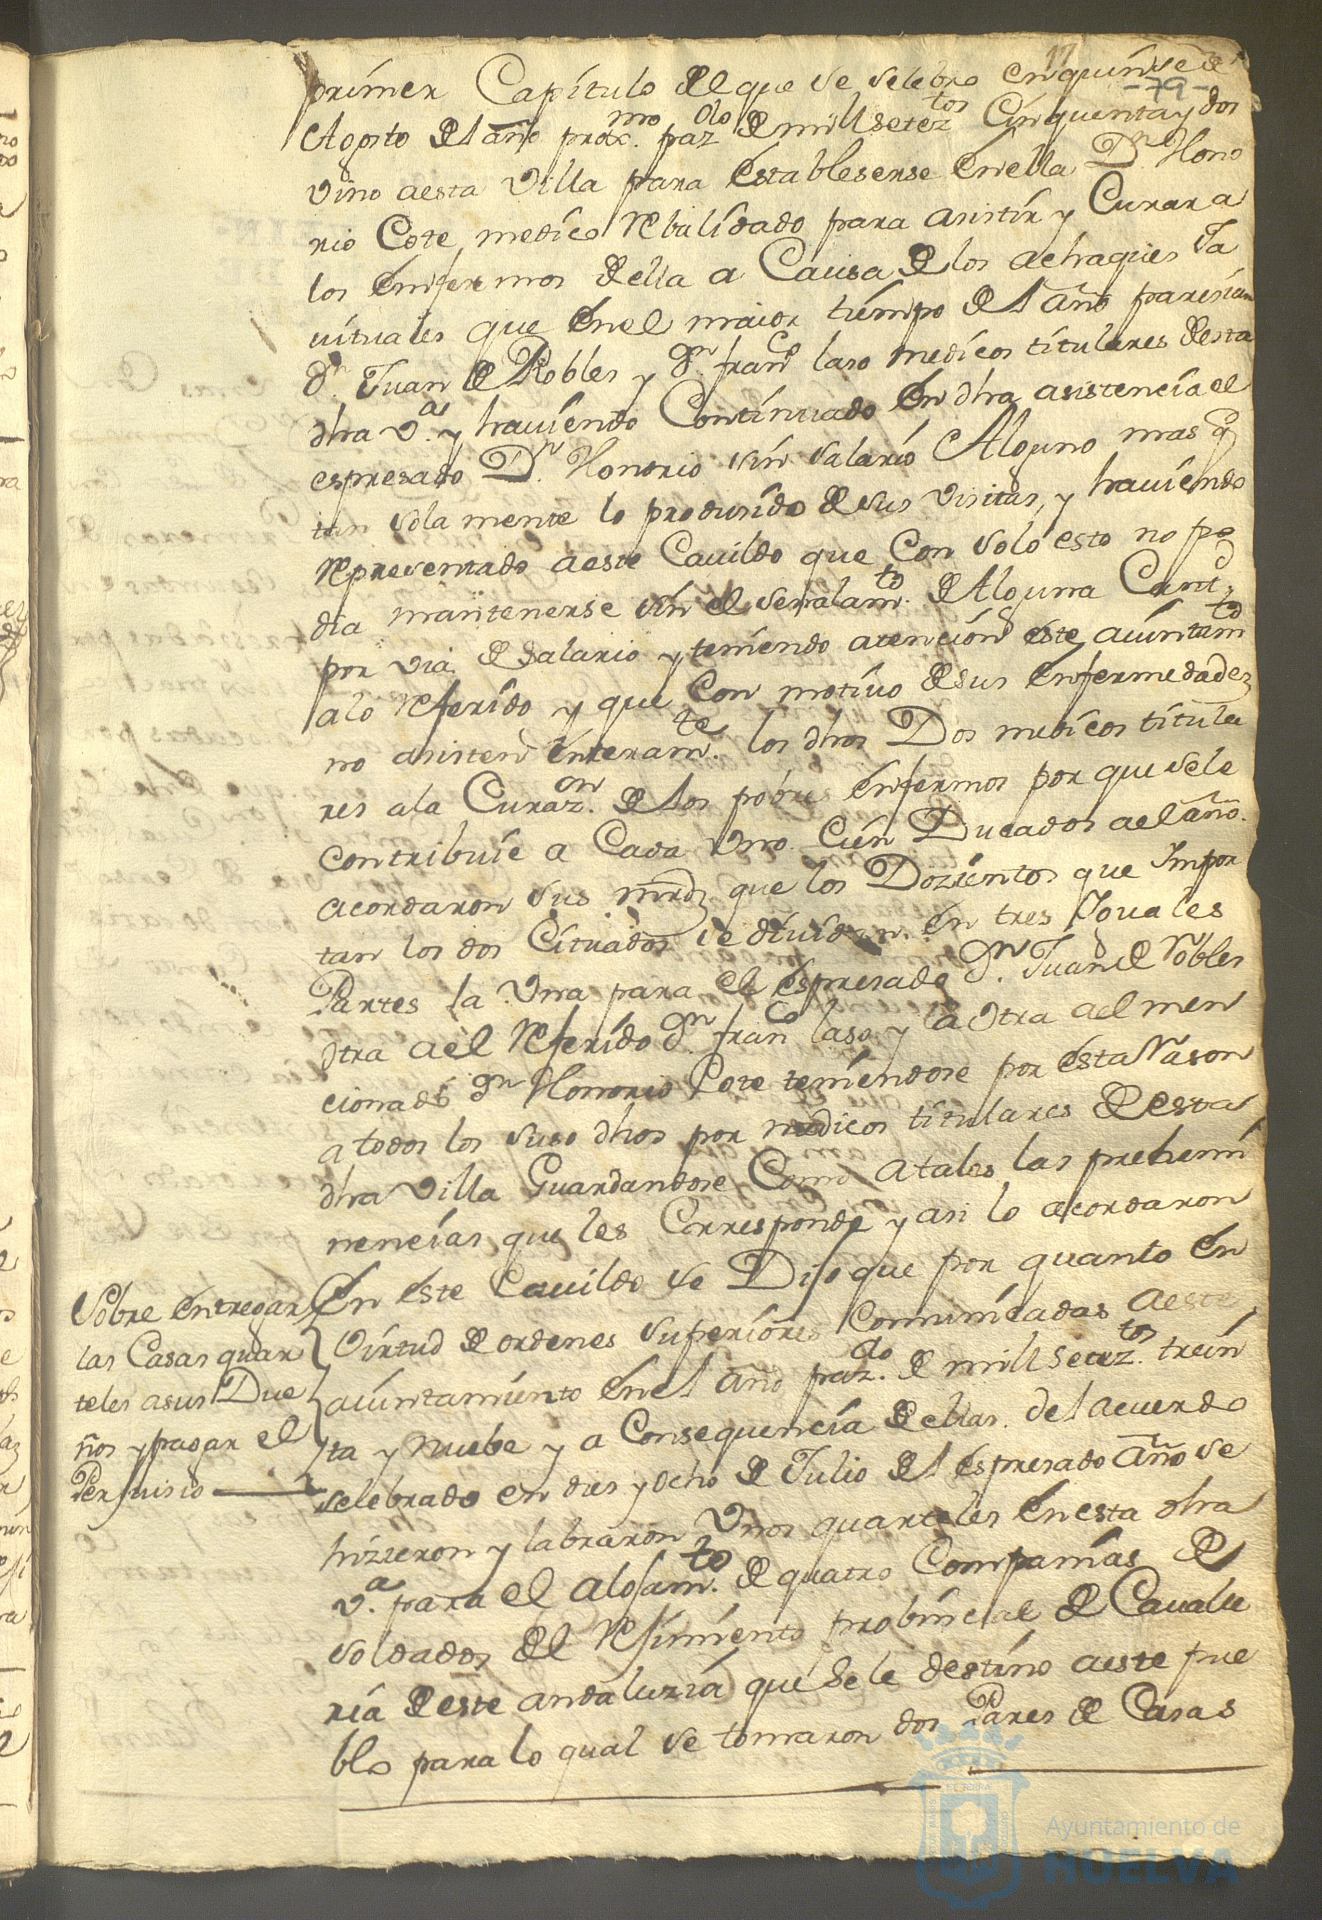 17
-79-
primer Capítulo del que se selebro en quinse de
Agosto del año prox.mo paz.do de mill setez.tos Cinquenta y dos
vino a esta Villa para estableserse en ella D.n Hono
rio Cote medico Rebalidado para asistir y Curar a
los enfermos della a Causa de los achaques Ja
uituales que en el maior tiempo del año paresian
d.n Juan de Robles y d.n fran.co laso medicos titulares desta
dha V.a y haviendo Continuado en dha asistencia el
espresado D.n Honorio sin salario Alguno mas q
tan solamente lo produsido de sus visitas, y haviendo
Representado a este Cavildo que Con solo esto no po
dia mantenerse sin el señalam.to de Alguna Cantd
por via de salario y teniendo atencion este aiuntamto
a lo Referido y que Con motivo de sus enfermedades
no asisten enteram.te los dhos Dos medicos titula
res a la Curaz.on de los pobres enfermos por que se le
contribuie a Cada Uno Cien Ducados a el año.
acordaron sus mrdz que los Dozientos que Impor
tan los dos Cituados se dividan en tres Iguales
Partes la Una para el espresado d.n Juan de Robles
otra a el Referido d.n fran.co laso y la otra a el men
cionado d.n Honorio Cote teniendose por esta Rason
a todos los suso dhos por medicos titulares de esta
dha Villa Guardandose Como a tales las prehemi
nencias que les Corresponde y asi lo acordaron
Sobre entregar
las Casas quar
teles a sus Due
ños y pagar el
Perjuisio
En este Cavildo se Dijo que por quanto en
Virtud de ordenes superiores Comunicadas a este
aiuntamiento en el año paz.do de mill setez.tos trein
ta y nuebe y a Consequencia de ellas del acuerdo
selebrado en dies y ocho de Julio del espresado año se
hizieron y labraron Unos quarteles en esta dha
V.a para el alojam.to de quatro Compañias de
soldados del Rejimiento probincial de Cavalle
ria deste andaluzia que se le destino a este pue
blo para lo qual se tomaron dos Pares de Casas
Ayuntamiento de
HUELVA